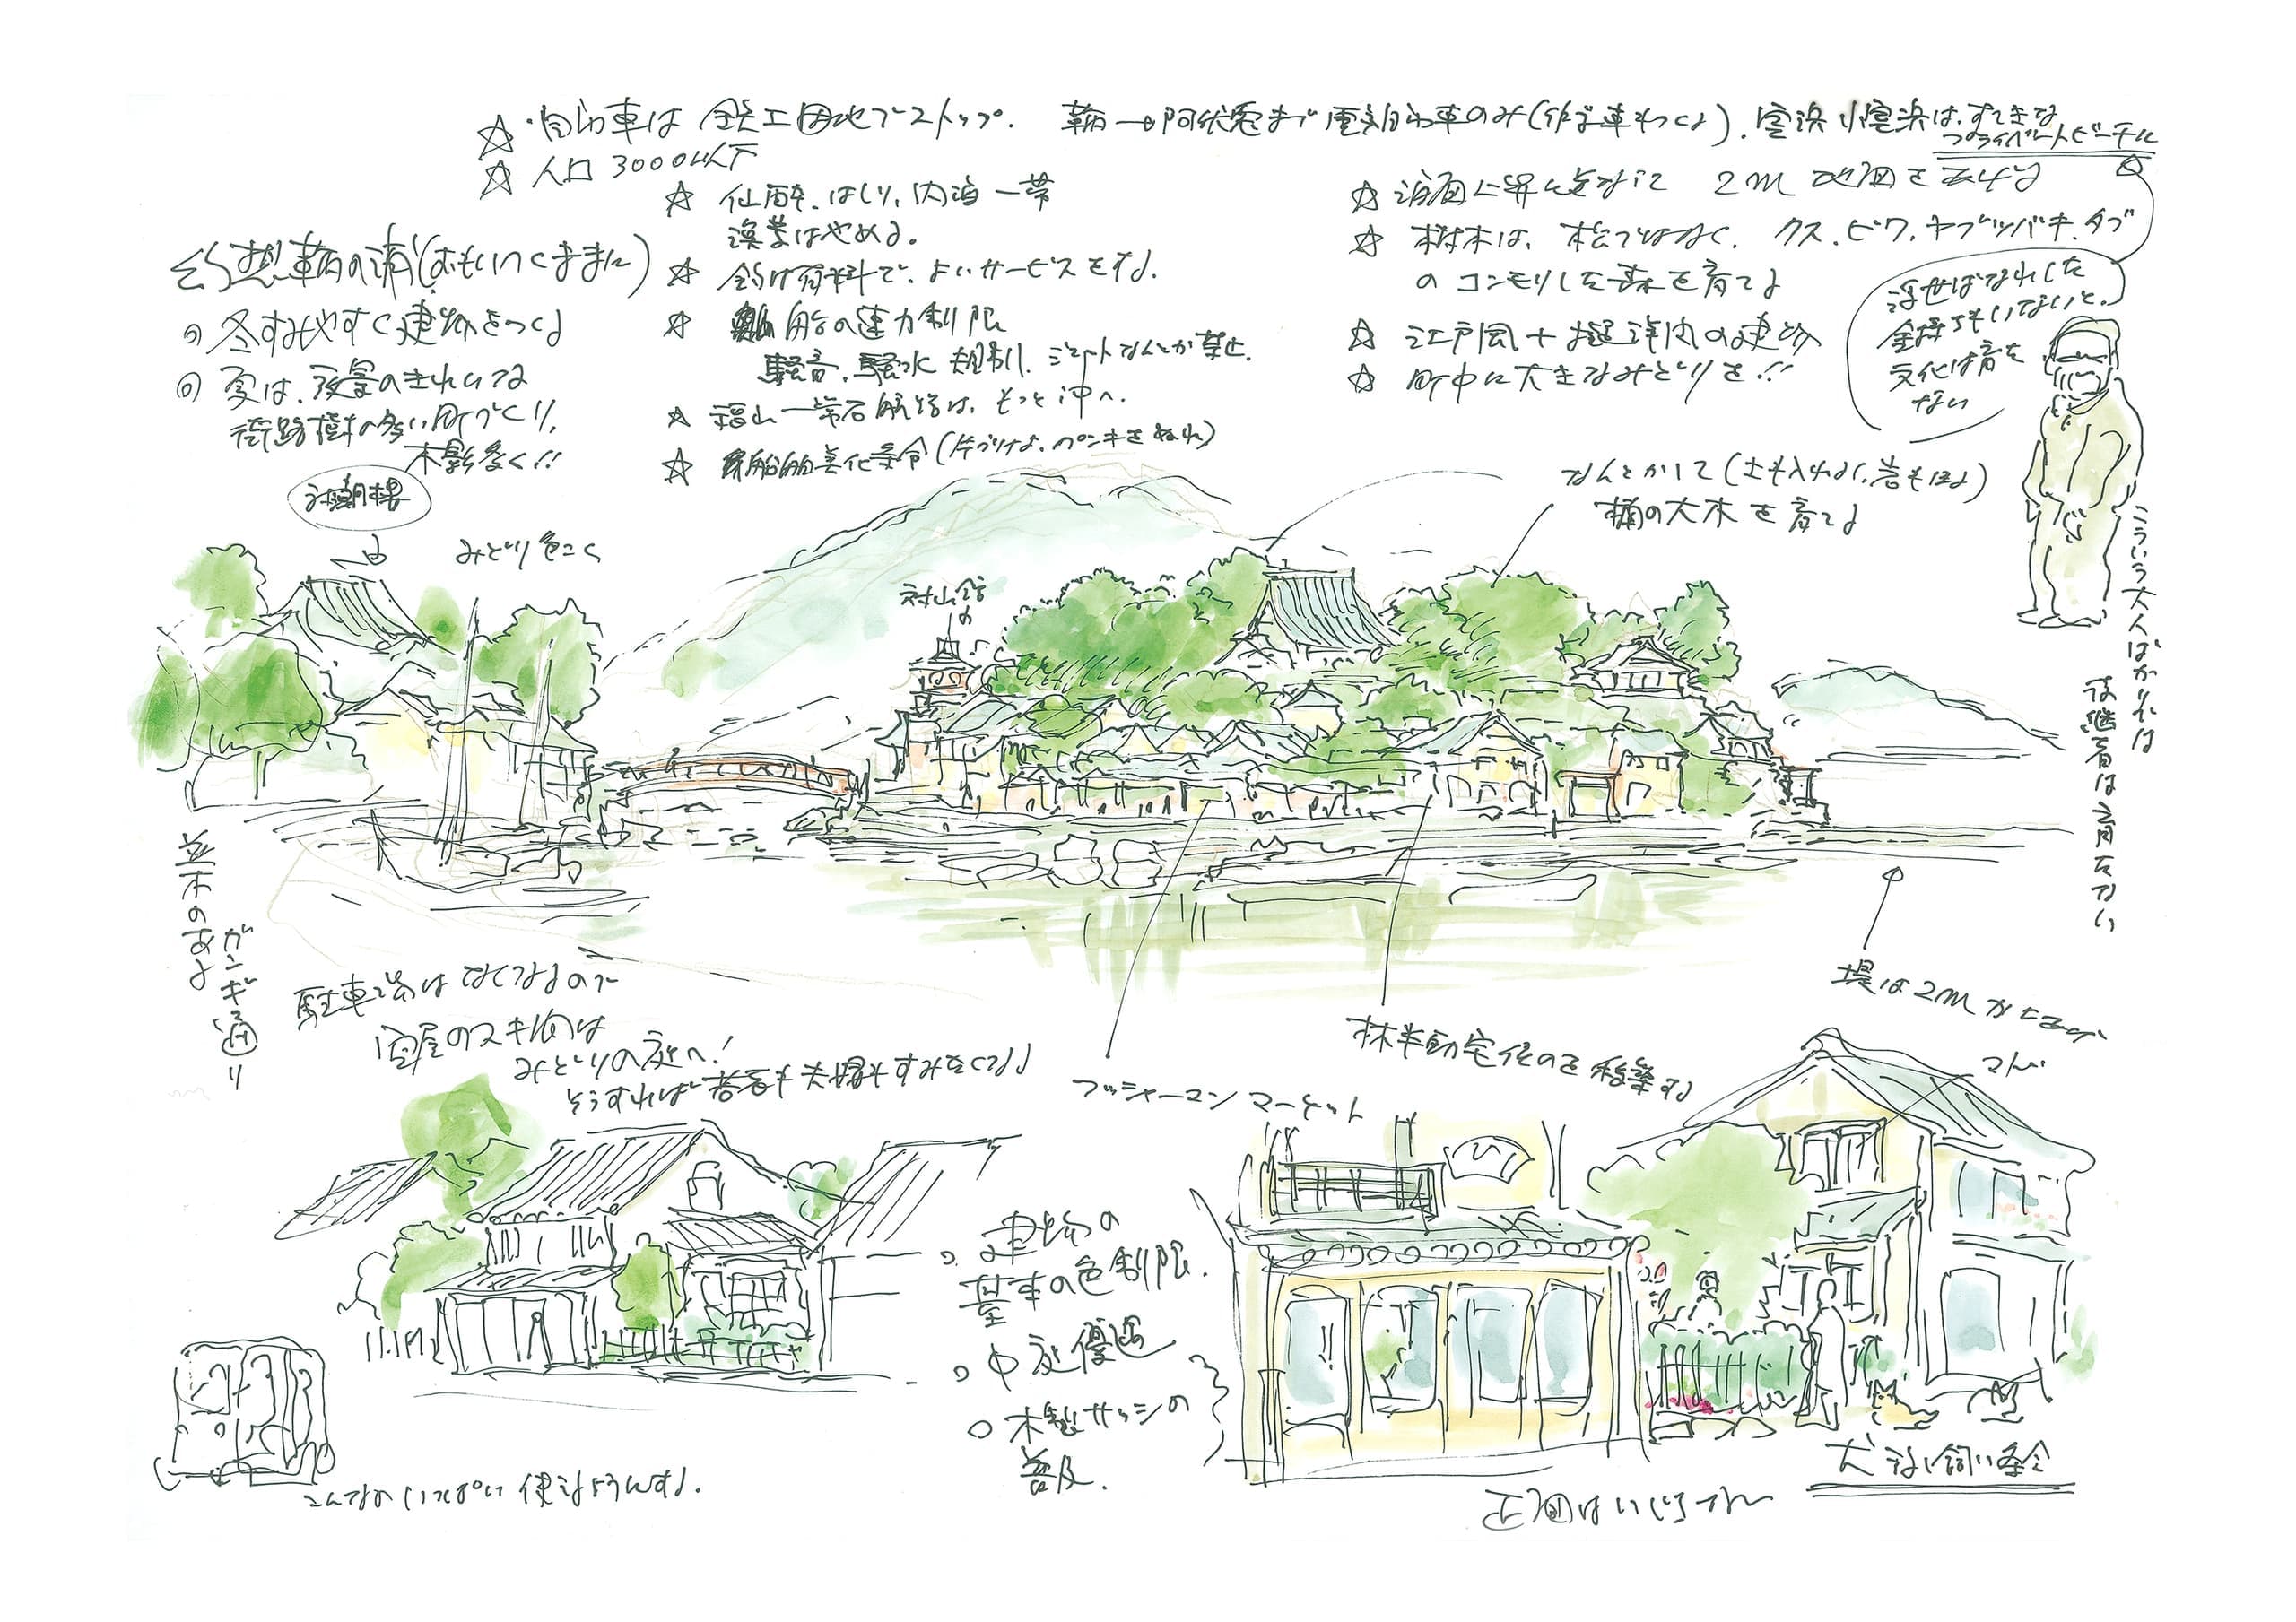 ☆ 自動車は 鉄工団地でストップ. 鞆→阿伏兎まで電気自動車のみ(作る.). 室浜 小室浜は.すてきな
プライベートビーチに
☆ 人口 3000以下
☆ 仙酔. はしり, 内海 一帯
漁業はやめる。
☆ 釣は有料で. よいサービスをする.
☆ 船の速力制限
騒音. 騒水 規制. ジェットなんとか禁止.
☆ 福山―常石航路は, もっと沖へ.
☆ 船舶美化条令(片づけよ. ペンキをぬれ)
☆ 海面上昇に 2m 地面をあげる
☆ 樹木は, 松ではなく. クス. ビワ. ヤブツバキ. タブ
のコンモリした森を育てる
☆ 江戸風+擬洋風の建物
☆ 町中に大きなみどりを!!
幻想 鞆の浦(おもいつくままに)
◎ 冬すみやすく建物をつくる
◎ 夏は. 夜景のきれいな
街路樹の多い町づくり,
木影多く!!
浮世ばなれした
金持ちでもいないと.
文化は育た
ない
こういう大人ばかりでは
後継者は育たない
対潮楼
みどり色こく
対山館の
なんとかして(土も入れよ.岩もほる)
楠の大木を育てる
並木のある
ガンギ通り
駐車場はなくなるので
家屋のスキ間は
みどりの庭へ!
そうすれば若者も夫婦もすみたくなる
フッシャーマン マーケット
林半助宅を移築する
堤は2m
建物の
基本の色制限.
○ 中庭優遇
○ 木製サッシの
普及.
こんなのがいっぱい使えるようにする.
正面はいじらない
犬 放し飼い条令